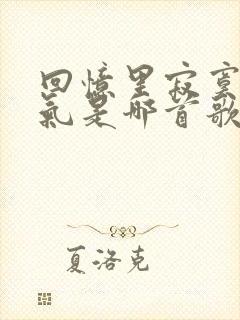 回憶里寂寞
氣是哪首歌
夏洛克